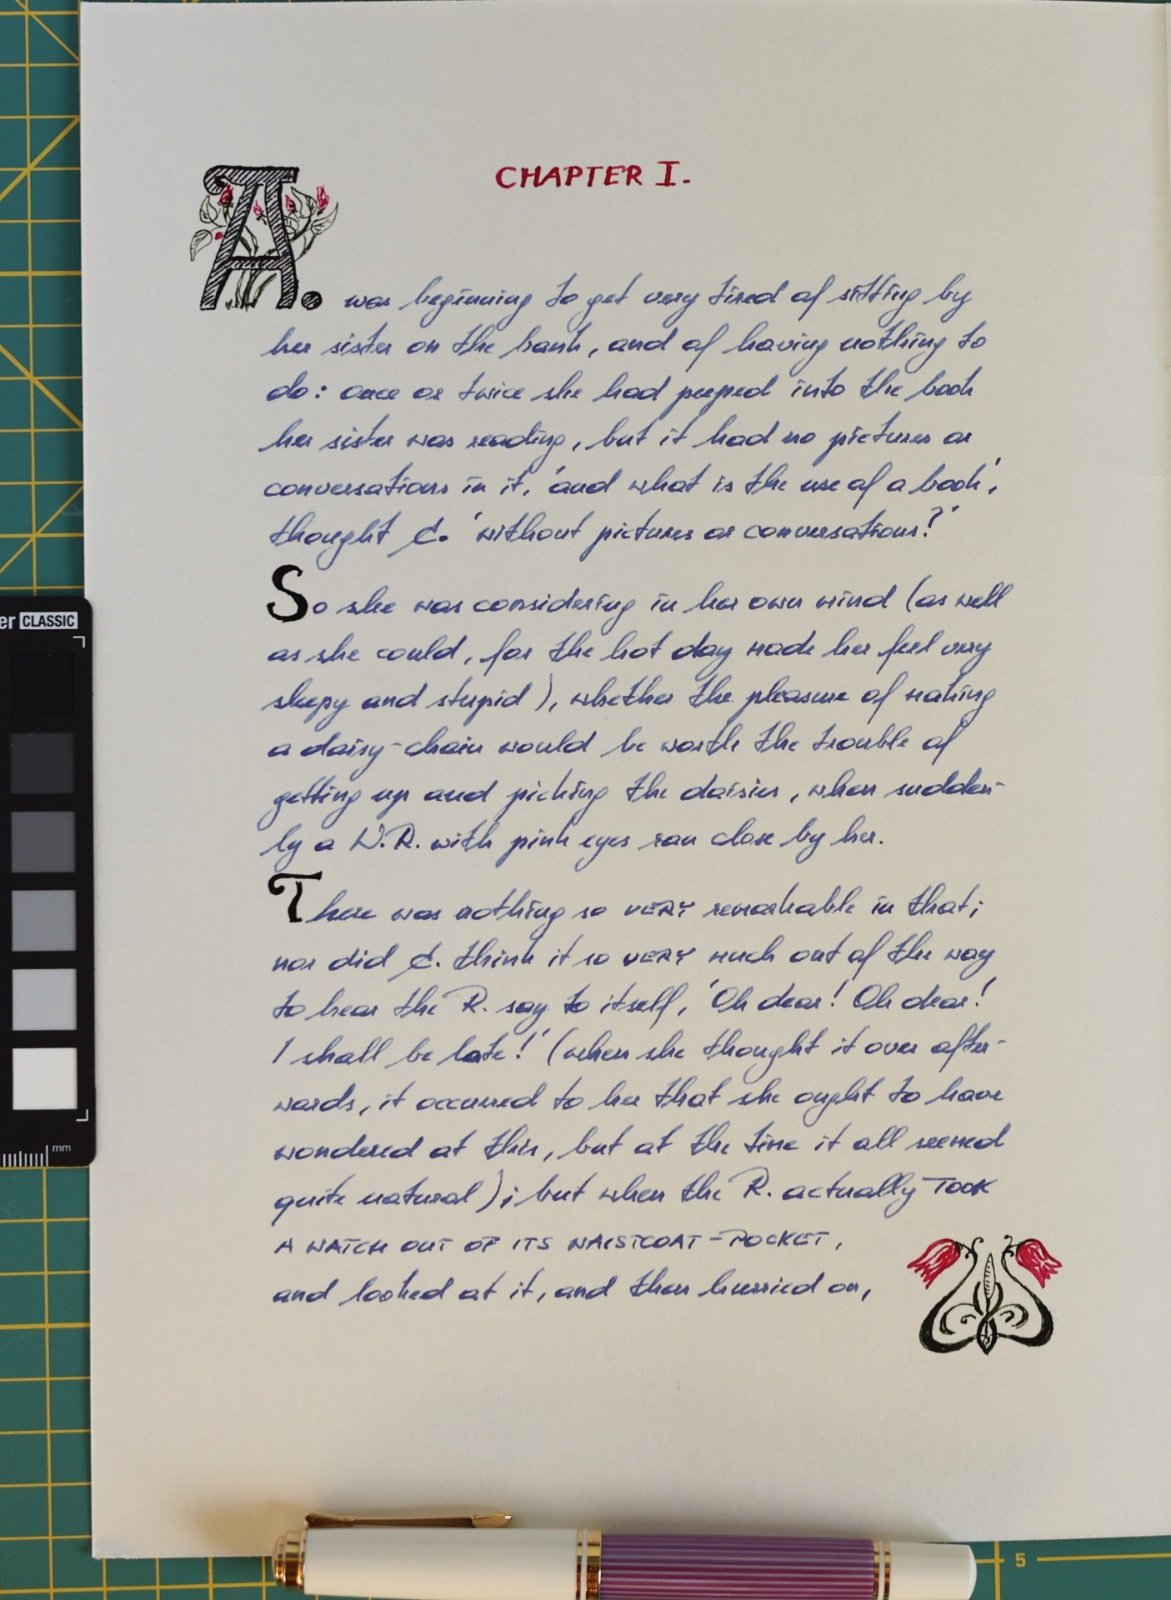 CHAPTER I.
A. was beginning to get very tired of sitting by
her sister on the bank, and of having nothing to
do: once or twice she had peeped into the book
her sister was reading, but it had no pictures or
conversations in it, 'and what is the use of a book',
thought A. 'without pictures or conversations?'
So she was considering in her own mind (as well
as she could, for the hot day made her feel very
sleepy and stupid), whether the pleasure of making
a daisy-chain would be worth the trouble of
getting up and picking the daisies, when sudden-
ly a W.R. with pink eyes ran close by her.
There was nothing so VERY remarkable in that;
nor did A. think it so VERY much out of the way
to hear the R. say to itself, 'Oh dear! Oh dear!
I shall be late!' (when she thought it over after-
wards, it occurred to her that she ought to have
wondered at this, but at the time it all seemed
quite natural); but when the R. actually TOOK
A WATCH OUT OF ITS WAISTCOAT-POCKET,
and looked at it, and then hurried on,
er CLASSIC
mm
5